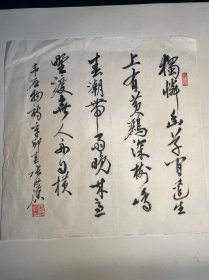 獨憐幽草澗邊生
上有黃鸝深樹鳴
春潮帶雨晚來急
野渡無人舟自橫
韋應物詩 辛卯春